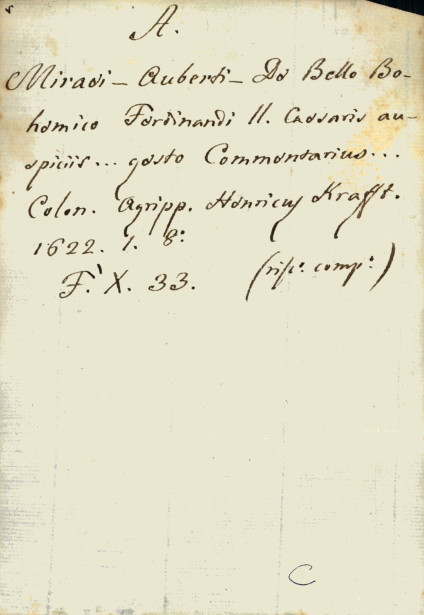 A.
Miraei - Auberti - De Bello Bo-
hemico Ferdinandi II. Caesaris au-
spiciis... gesto Commentarius...
Colon. Agripp. Henricus Krafft.
1622. 1. 8.º
F.' X. 33. (risc.º comp.º)
C